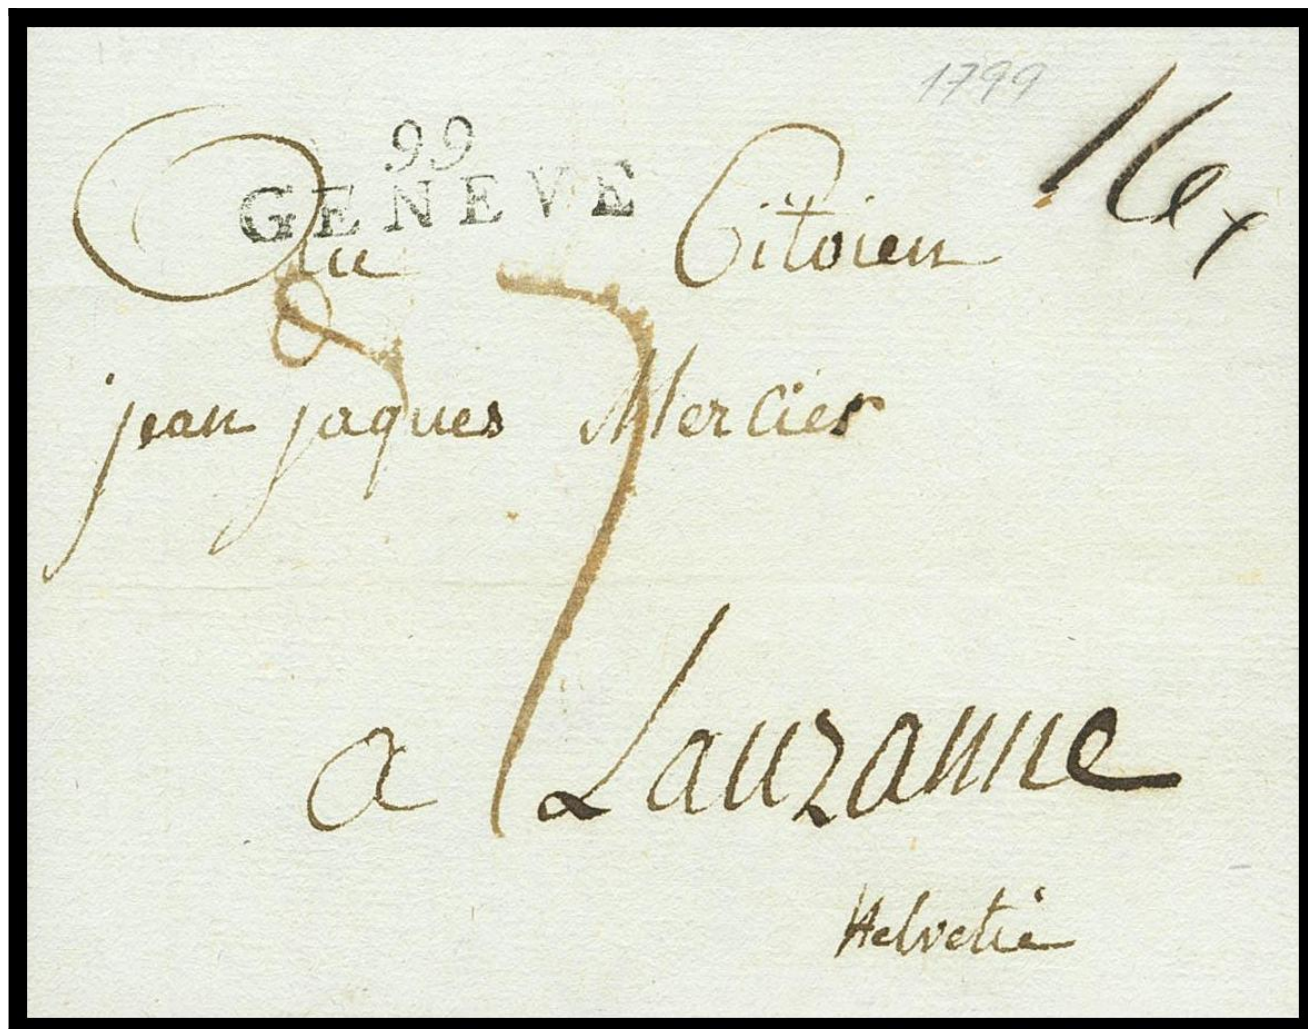 1799
99
GENEVE
16x
Au Citoien
7
jean jaques Mercier
a Lauzanne
Helvetie